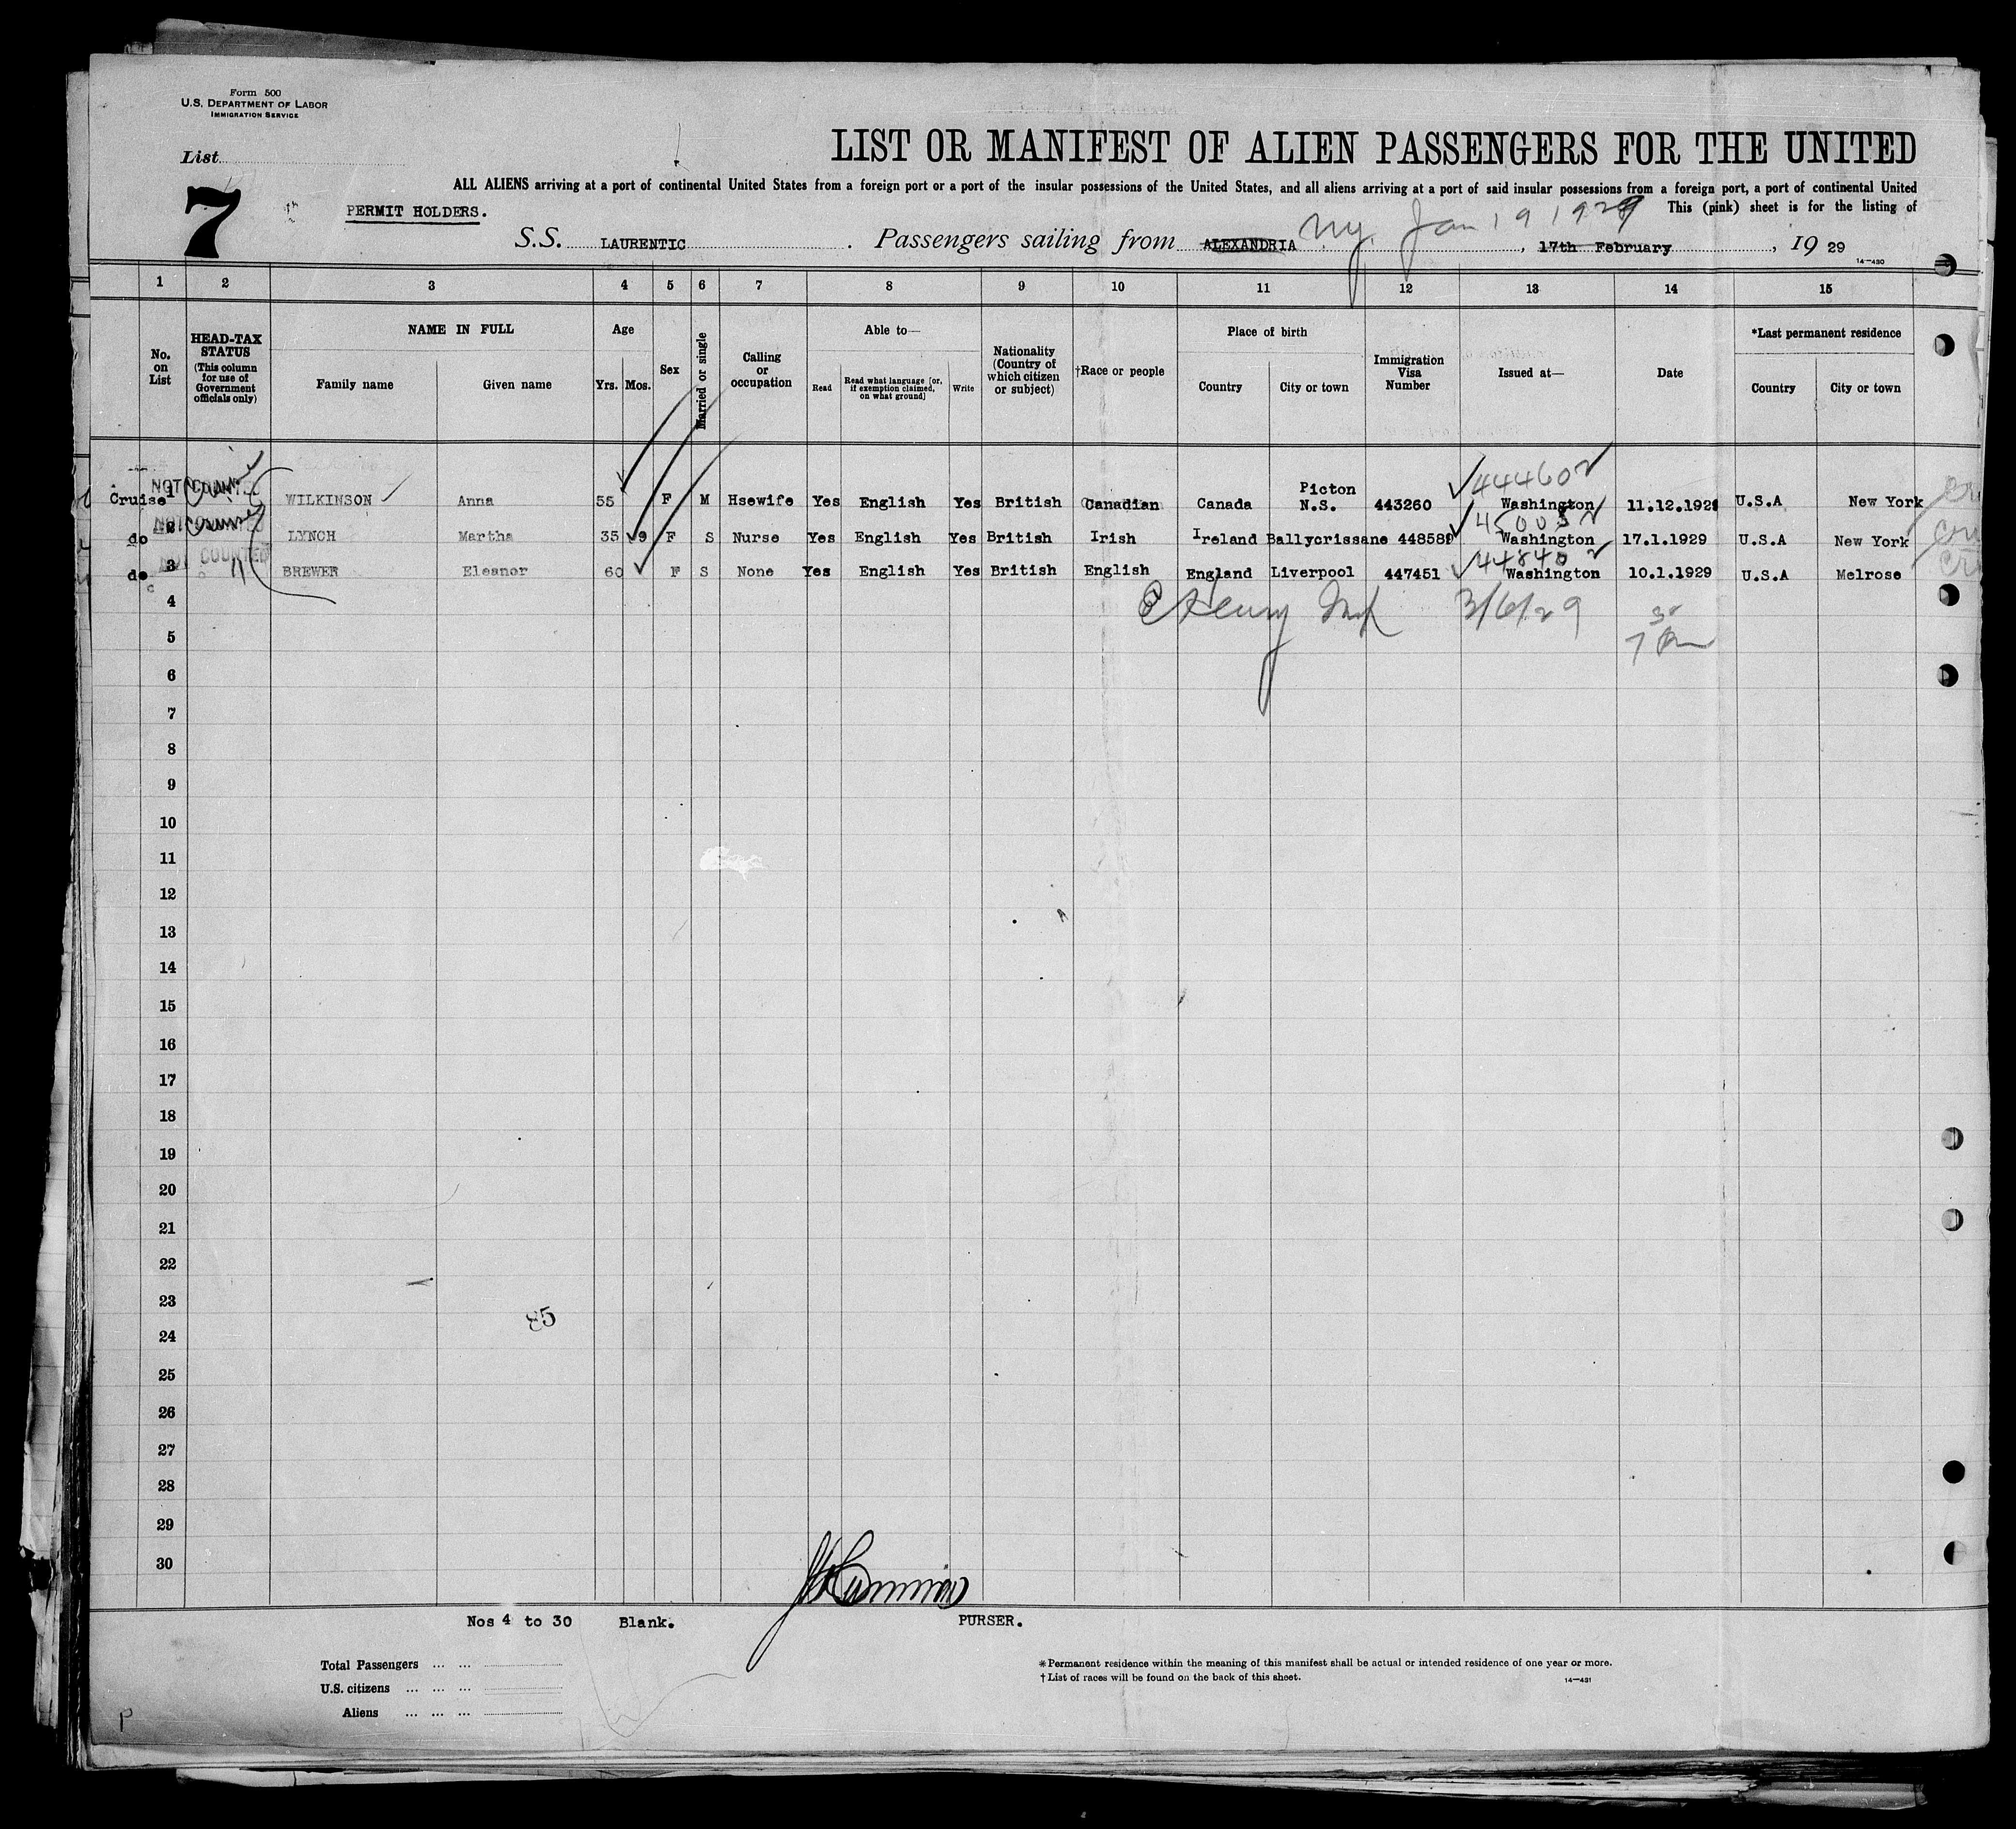 Form 500
U.S. DEPARTMENT OF LABOR
IMMIGRATION SERVICE
List
7
LIST OR MANIFEST OF ALIEN PASSENGERS FOR THE UNITED
ALL ALIENS arriving at a port of continental United States from a foreign port or a port of the insular possessions of the United States, and all aliens arriving at a port of said insular possessions from a foreign port, a port of continental United
PERMIT HOLDERS. This (pink) sheet is for the listing of
S.S. LAURENTIC. Passengers sailing from ALEXANDRIA NY. Jan 19 1929, 17th February, 19 29
14-430
1 2 3 4 5 6 7 8 9 10 11 12 13 14 15
No. on List
HEAD-TAX STATUS (This column for use of Government officials only)
NAME IN FULL Family name Given name
Age Yrs. Mos.
Sex
Married or single
Calling or occupation
Able to— Read Read what language [or, if exemption claimed, on what ground] Write
Nationality (Country of which citizen or subject)
†Race or people
Place of birth Country City or town
Immigration Visa Number
Issued at—
Date
*Last permanent residence Country City or town
444602
Cruise 1 NOT COUNTED Cruise WILKINSON Anna 55 F M Hsewife Yes English Yes British Canadian Canada Picton N.S. 443260 Washington 11.12.1928 U.S.A New York
do 2 NOT COUNTED Cruise LYNCH Martha 35 9 F S Nurse Yes English Yes British Irish Ireland Ballycrissane 448589 Washington 17.1.1929 U.S.A New York
do 3 NOT COUNTED BREWER Eleanor 60 F S None Yes English Yes British English England Liverpool 447451 Washington 10.1.1929 U.S.A Melrose
4 Henry 3/6/29
5
6
7
8
9
10
11
12
13
14
15
16
17
18
19
20
21
22
23
85
24
25
26
27
28
29
30
Nos 4 to 30 Blank. PURSER.
Total Passengers ... ...
U.S. citizens ... ... ...
Aliens ... ... ...
*Permanent residence within the meaning of this manifest shall be actual or intended residence of one year or more.
†List of races will be found on the back of this sheet.
14-431
P